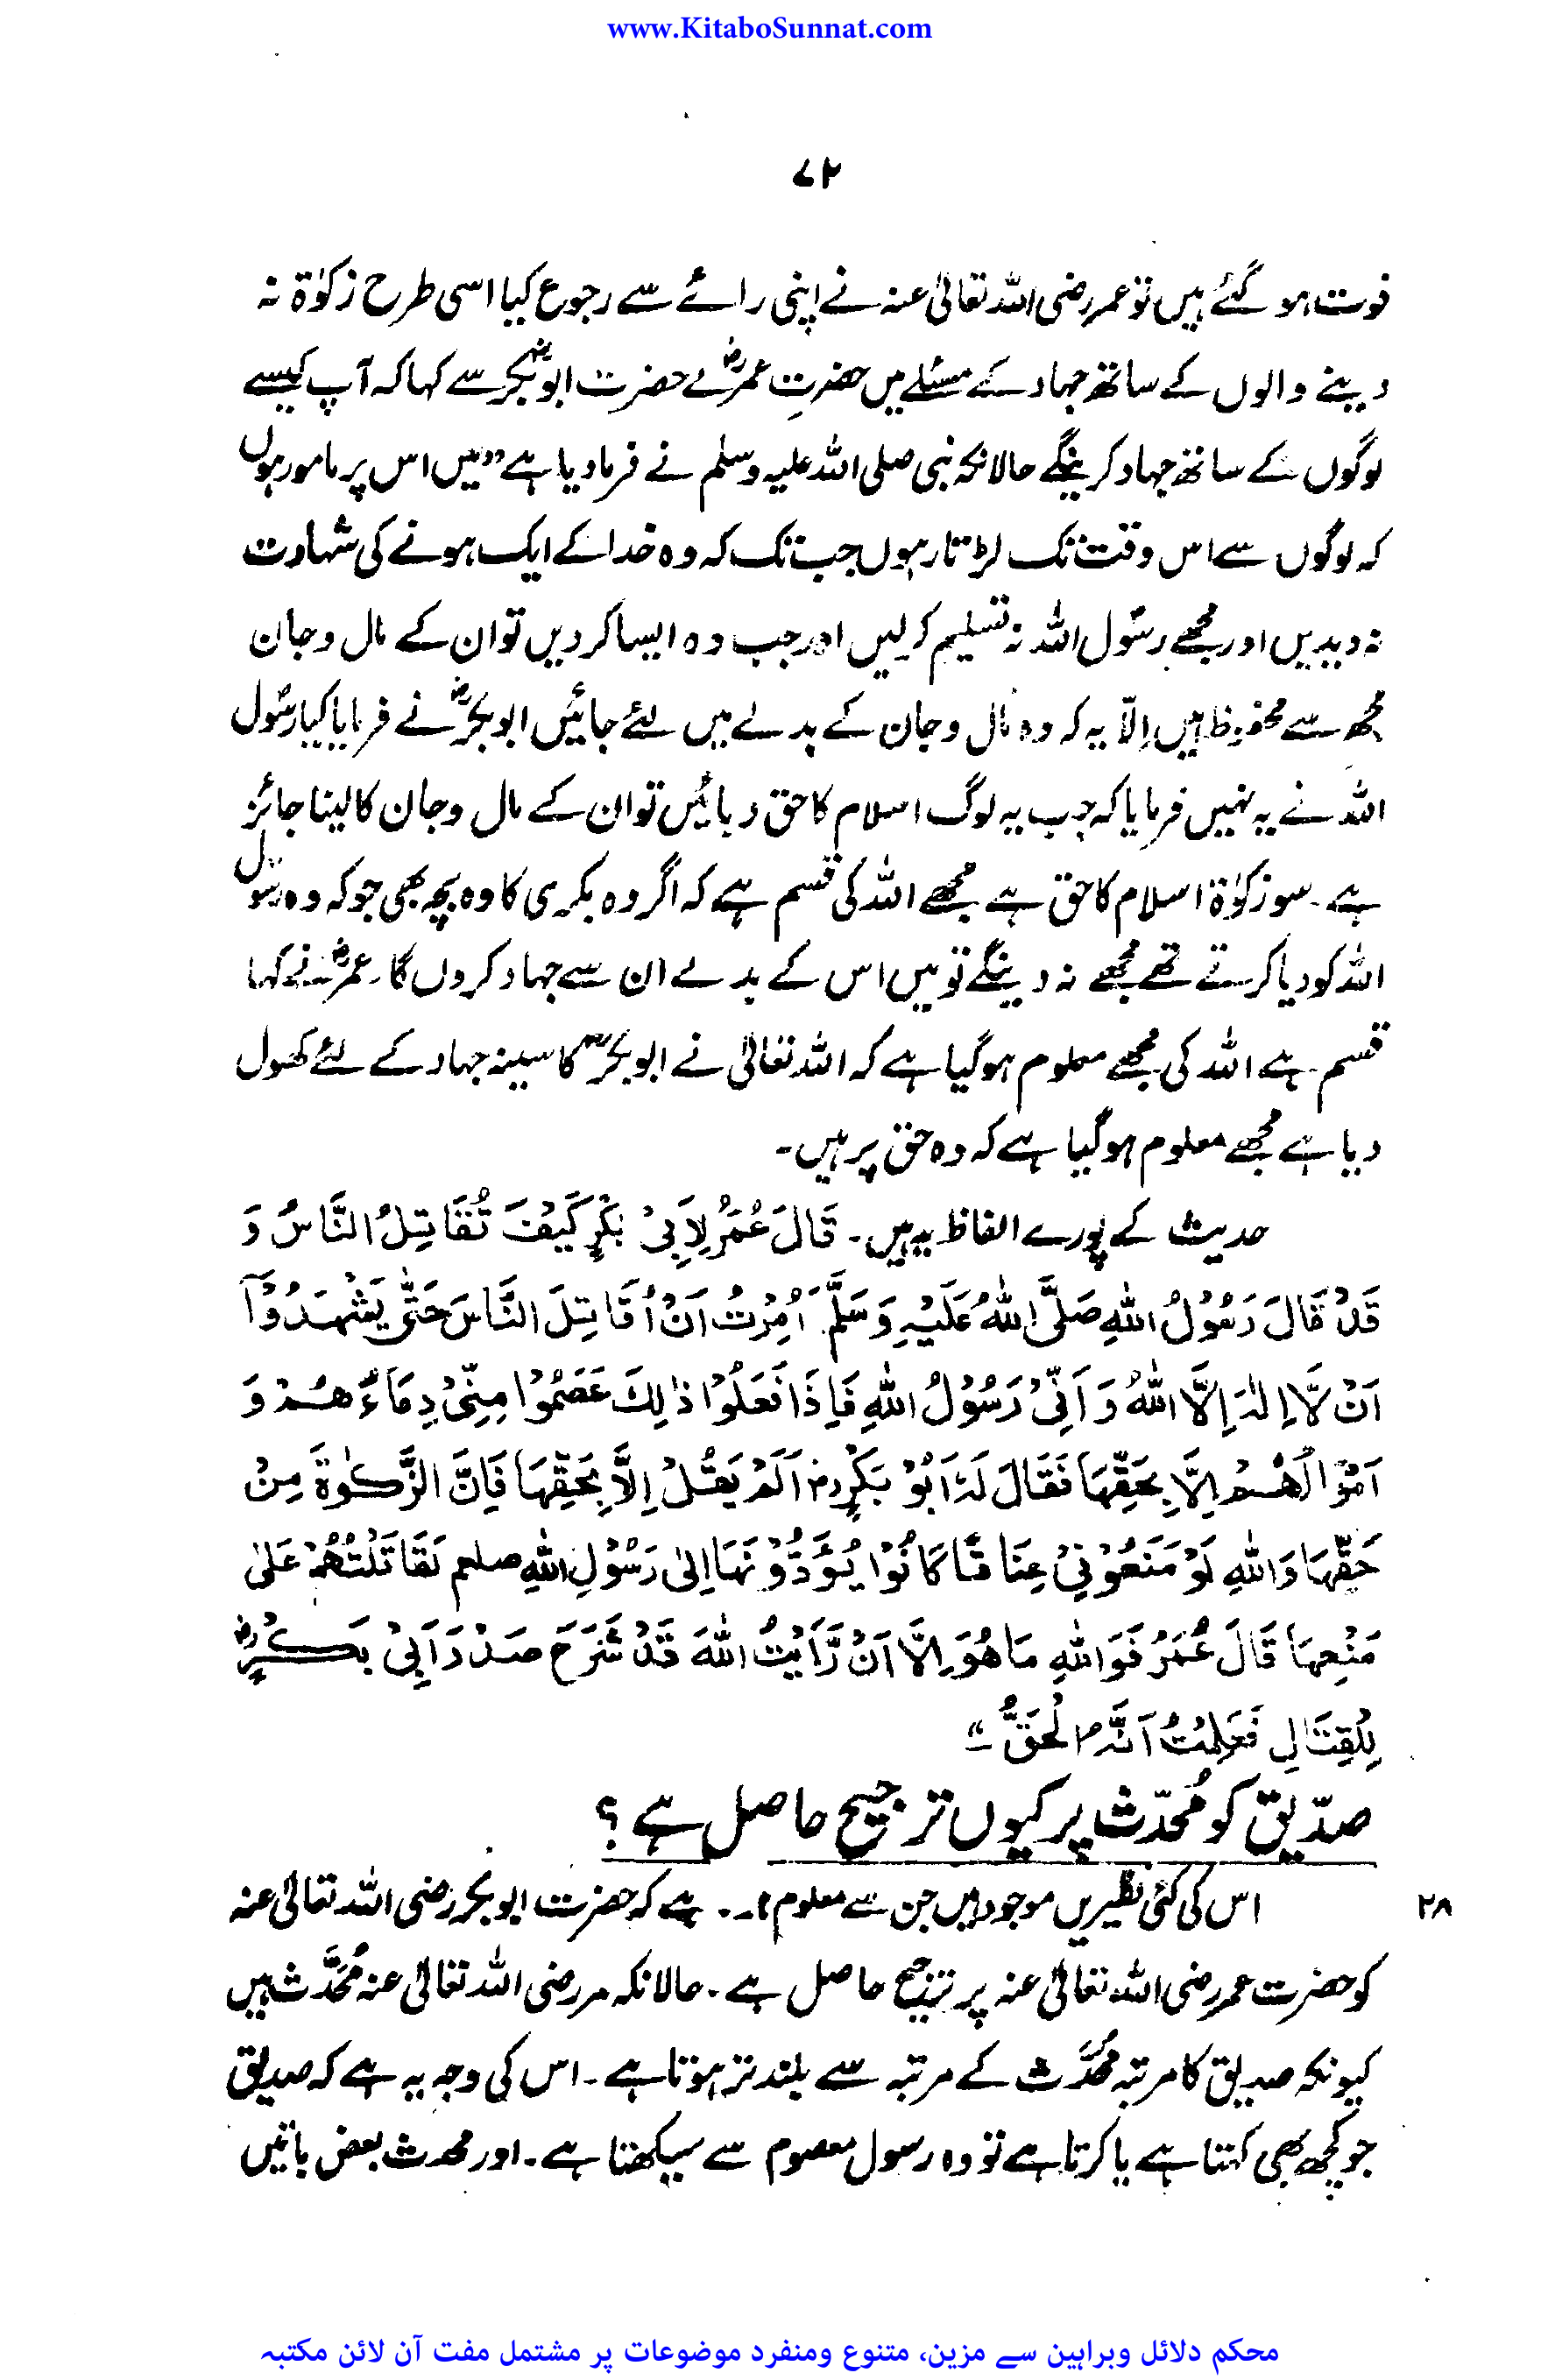 www.KitaboSunnat.com
۷۲
فوت ہو گئے ہیں تو عمر رضی اللہ تعالیٰ عنہ نے اپنی رائے سے رجوع کیا اسی طرح زکوٰۃ نہ
دینے والوں کے ساتھ جہاد کے مسئلے میں حضرتِ عمرؓ نے حضرت ابوبکرؓ سے کہا کہ آپ کیسے
لوگوں کے ساتھ جہاد کرینگے حالانکہ نبی صلی اللہ علیہ وسلم نے فرما دیا ہے ”میں اس پر مامور ہوں
کہ لوگوں سے اس وقت تک لڑتا رہوں جب تک کہ وہ خدا کے ایک ہونے کی شہادت
نہ دیدیں اور مجھے رسُول اللہ نہ تسلیم کرلیں اور جب وہ ایسا کر دیں تو ان کے مال و جان
مجھ سے محفوظ ہیں اِلّا یہ کہ وہ مال و جان کے بدلے میں لئے جائیں ابوبکرؓ نے فرمایا کیا رسُول
اللہ نے یہ نہیں فرمایا کہ جب یہ لوگ اسلام کا حق دبائیں تو ان کے مال و جان کا لینا جائز
ہے۔ سو زکوٰۃ اسلام کا حق ہے مجھے اللہ کی قسم ہے کہ اگر وہ بکری کا وہ بچہ بھی جو کہ وہ رسول
اللہ کو دیا کرتے تھے مجھے نہ دینگے تو میں اس کے بدلے ان سے جہاد کروں گا۔ عمرؓ نے کہا
قسم ہے اللہ کی مجھے معلوم ہوگیا ہے کہ اللہ تعالیٰ نے ابوبکرؓ کا سینہ جہاد کے لئے کھول
دیا ہے مجھے معلوم ہوگیا ہے کہ وہ حق پر ہیں۔
حدیث کے پورے الفاظ یہ ہیں۔ قَالَ عُمَرُ لِاَبِیْ بَکْرٍ کَیْفَ تُقَاتِلُ النَّاسَ وَ
قَدْ قَالَ رَسُوْلُ اللّٰہِ صَلَّی اللّٰہُ عَلَیْہِ وَسَلَّمَ اُمِرْتُ اَنْ اُقَاتِلَ النَّاسَ حَتّٰی یَشْہَدُوْآ
اَنْ لَّا اِلٰہَ اِلَّا اللّٰہُ وَ اَنِّیْ رَسُوْلُ اللّٰہِ فَاِذَا فَعَلُوْا ذٰلِکَ عَصَمُوْا مِنِّیْ دِمَاءَھُمْ وَ
اَمْوَالَھُمْ اِلَّا بِحَقِّہَا فَقَالَ لَہٗ اَبُوْ بَکْرٍرض اَلَمْ یَقُلْ اِلَّا بِحَقِّہَا فَاِنَّ الزَّکٰوۃَ مِنْ
حَقِّہَا وَاللّٰہِ لَوْ مَنَعُوْنِیْ عِنَاقًا کَانُوْا یُؤَدُّوْنَہَا اِلٰی رَسُوْلِ اللّٰہِ صلعم لَقَاتَلْتُھُمْ عَلٰی
مَنْعِہَا قَالَ عُمَرُ فَوَاللّٰہِ مَا ھُوَ اِلَّا اَنْ رَّاَیْتُ اللّٰہَ قَدْ شَرَحَ صَدْرَ اَبِیْ بَکْرٍؓ
لِلْقِتَالِ فَعَلِمْتُ اَنَّہُ الْحَقُّ“
صدّیق کو مُحدّث پر کیوں ترجیح حاصل ہے؟
۲۸ اس کی کئی نظیریں موجود ہیں جن سے معلوم ہے کہ حضرت ابوبکر رضی اللہ تعالیٰ عنہ
کو حضرت عمر رضی اللہ تعالیٰ عنہ پر ترجیح حاصل ہے۔ حالانکہ عمر رضی اللہ تعالیٰ عنہ مُحَدَّث ہیں
کیونکہ صدیق کا مرتبہ مُحَدَّث کے مرتبہ سے بلند تر ہوتا ہے۔ اس کی وجہ یہ ہے کہ صدیق
جو کچھ بھی کہتا ہے یا کرتا ہے تو وہ رسول معصوم سے سیکھتا ہے۔ اور محدث بعض باتیں
محکم دلائل وبراہین سے مزین، متنوع ومنفرد موضوعات پر مشتمل مفت آن لائن مکتبہ